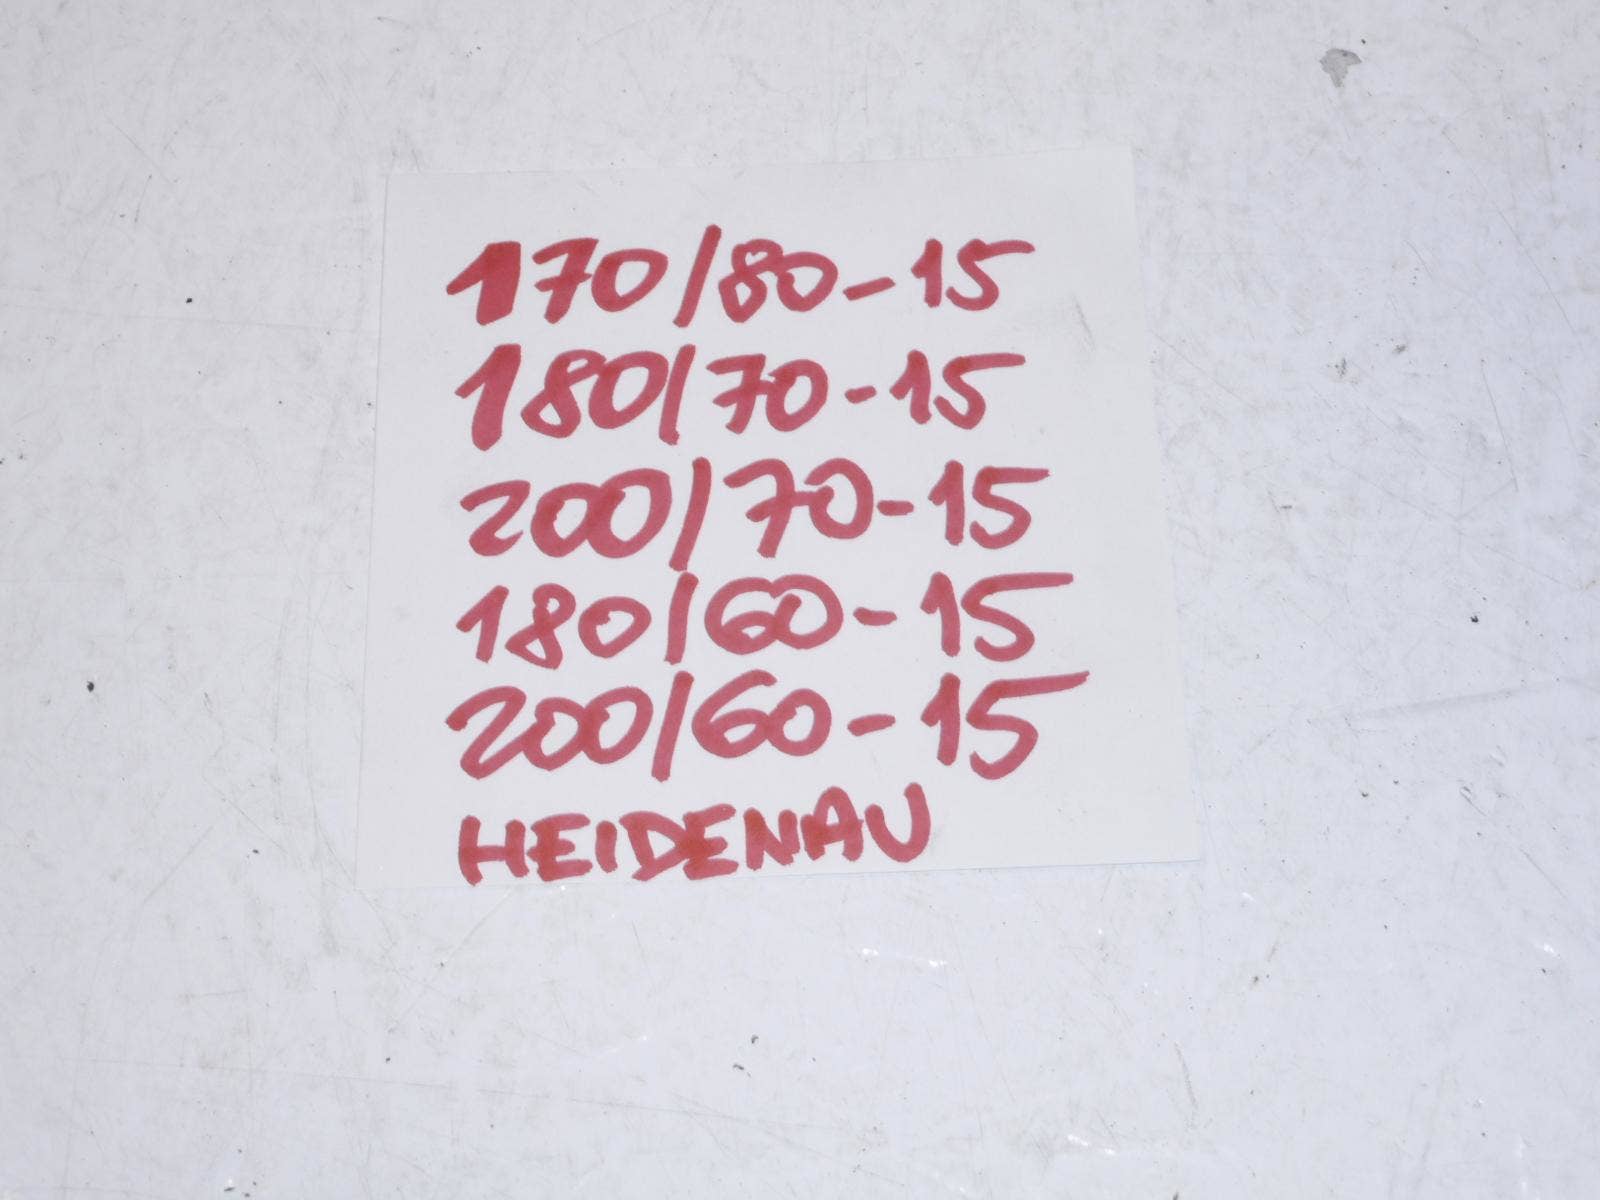 170/80-15
180/70-15
200/70-15
180/60-15
200/60-15
HEIDENAU